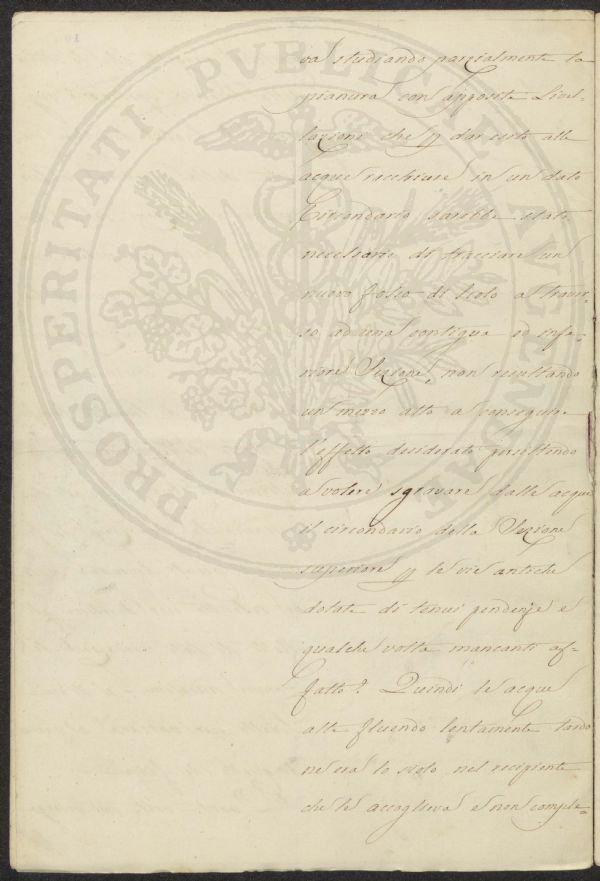 va studiando parzialmente la
pianura con apposite Livel-
lazioni che p dar esito alle
acque racchiuse in un dato
Circondario sarebbe stato
necessario di tracciare un
nuovo fosso di scolo a traver-
so ad una contigua ed infe-
riore Sezione, non resultando
un mezzo atto a conseguire
l'effetto desiderato persistendo
a volere sgravare dalle acque
il circondario della Sezione
superiore p le vie antiche
dotate di tenui pendenze e
qualche volta mancanti af-
fatto? Quindi le acque
alte fluendo lentamente tardo
ne era lo scolo nel recipiente
che le accoglieva e non comple-
PROSPERITATI PVBLICAE AVGENDAE